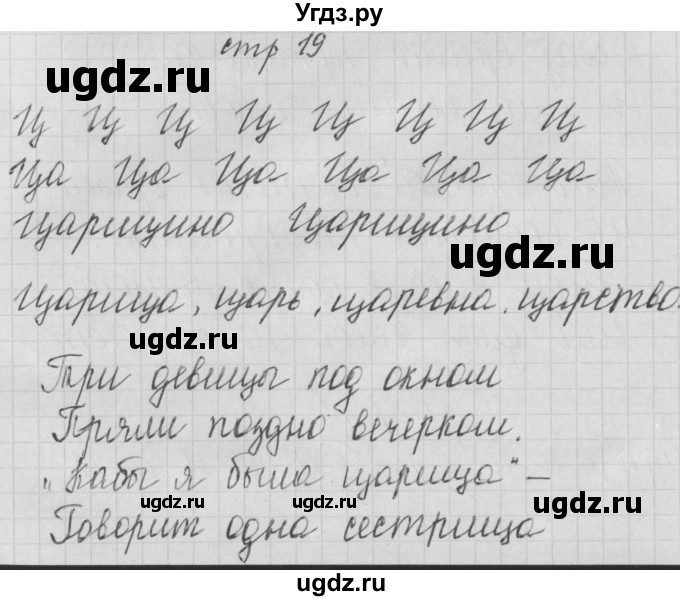 Угдз.ру
стр 19
ugdz.ru
Ц Ц Ц Ц Ц Ц Ц Ц
Ца Ца Ца Ца Ца Ца
Царицино Царицино
ugdz.ru
Царица, царь, царевна. царство.
ugdz.ru
Три девицы под окном
Пряли поздно вечерком.
„Кабы я была царица" –
ugdz.ru ugdz.ru
Говорит одна сестрица
ugdz.ru